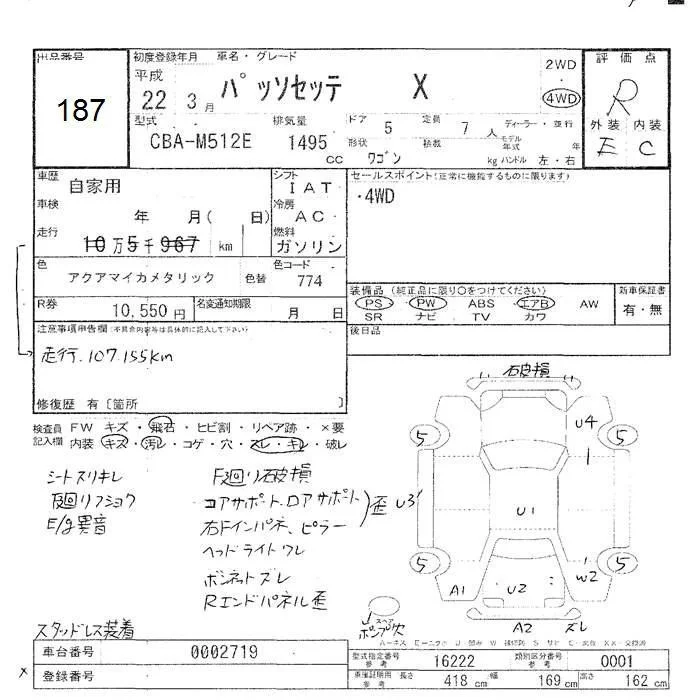 出品番号
187
初度登録年月 車名・グレード
平成
22 3月
パッソセッテ X
2WD
・
4WD
評価点
R
外装 内装
E C
型式 排気量 ドア 5 定員 7人 ディーラー・並行
CBA-M512E 1495 cc
形状 ワゴン 積載 kg ハンドル 左・右
モデル年式 年
車歴 自家用
シフト IAT
車検 年 月( 日)
冷房 AC
走行 10万5千967 km
燃料 ガソリン
色 アクアマイカメタリック 色替
色コード 774
R券 10,550円 名変通知期限 月 日
セールスポイント(正常に機能するものに限ります)
・4WD
装備品 (純正品に限り○をつけてください)
PS PW ABS エアB AW
SR ナビ TV カワ
新車保証書
有・無
後日品
注意事項申告欄(不具合内容等は具体的に記入して下さい)
走行.107.155km
修復歴 有〔箇所 〕
検査員 FW キズ・飛石・ヒビ割・リペア跡・×要
記入欄 内装 キズ・汚レ・コゲ・穴・スレ・キレ・破レ
シートスリキレ
E/g異音
F廻り破損
コアサポート、ロアサポート
右Fインパネ、ピラー
歪
ヘッドライトワレ
ボンネットズレ
Rエンドパネル歪
スタッドレス装着
破損
5
5
5
5
U4
U3
U1
U2
W2
A1
A2 ズレ
スペア
車台番号 0002719
登録番号
型式指定番号 参考 16222 類別区分番号 参考 0001
車庫証明用 参考 長さ 418 cm 幅 169 cm 高さ 162 cm